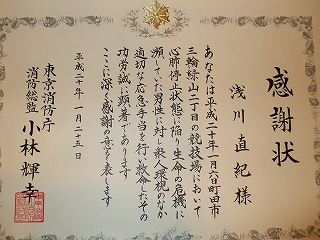 感謝状
浅川直紀様
あなたは平成二十年一月六日町田市
三輪緑山二丁目の競技場において
心肺停止状態に陥り生命の危機に
瀕していた男性に対し衆人環視のなか
適切な応急手当を行い救命したその
功労誠に顕著であります
ここに深く感謝の意を表します
平成二十年一月二十五日
東京消防庁
消防総監 小林輝幸